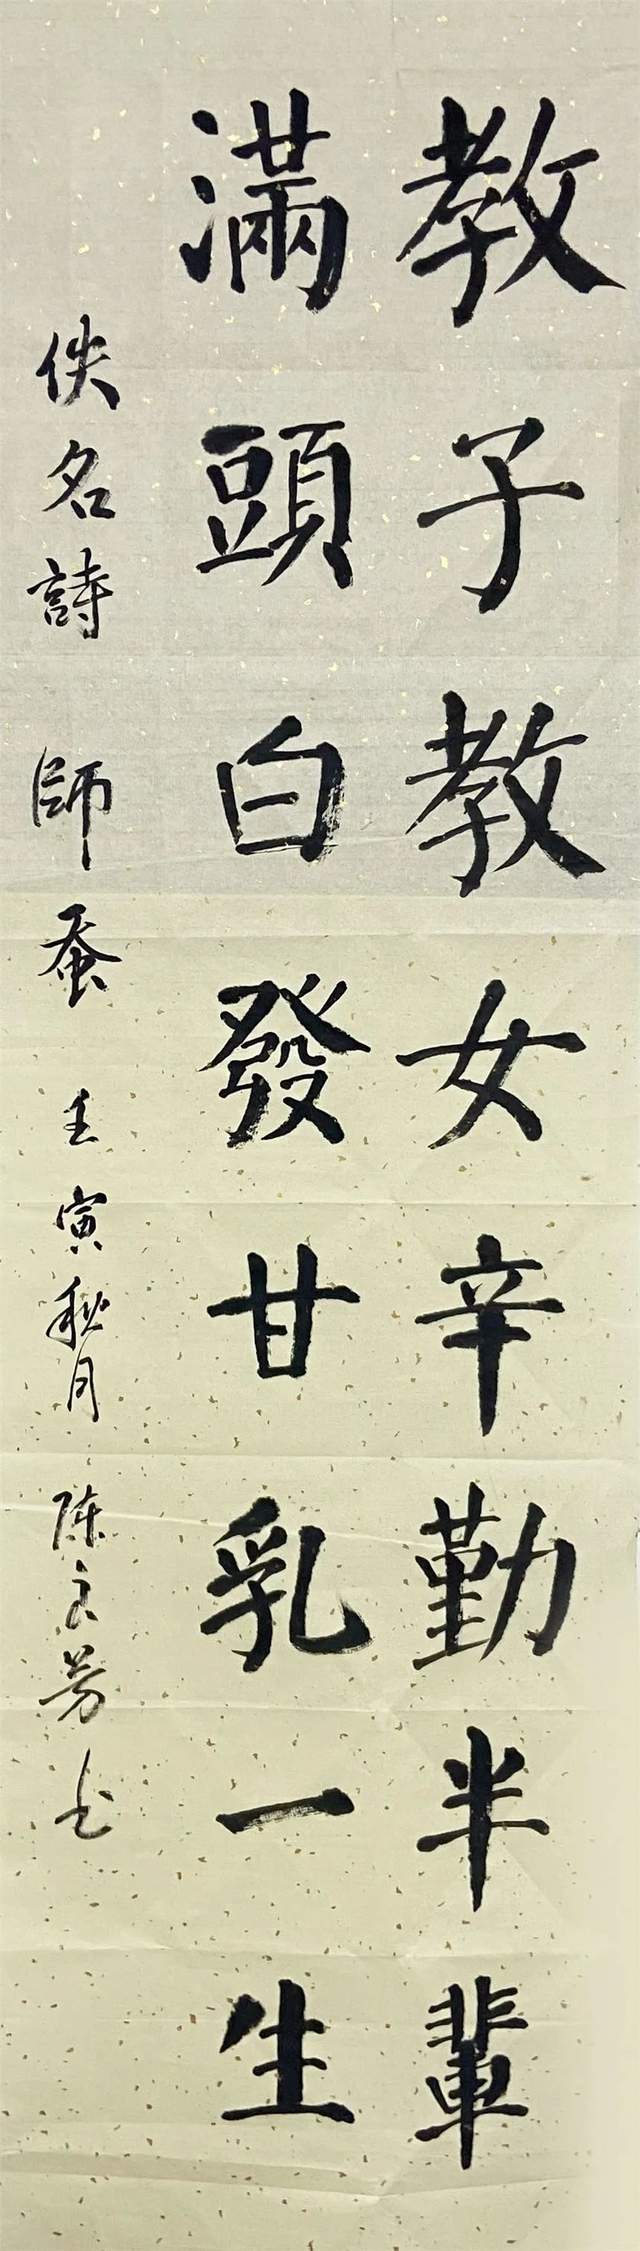 教子教女辛勤半輩
滿頭白發甘乳一生
佚名詩 師蚕 壬寅秋月 陈文芳书